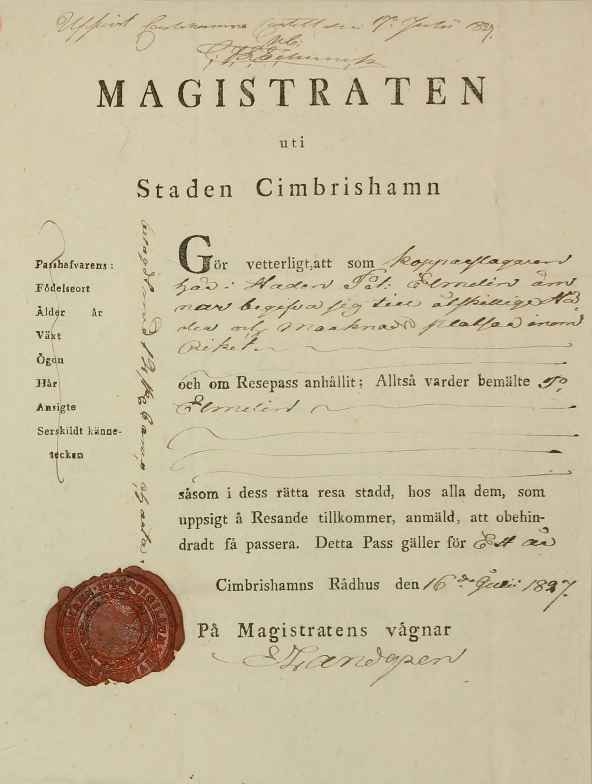 Uppvist den 17de Julii 1827.
MAGISTRATEN
uti
Staden Cimbrishamn
Passhafvarens:
Födelseort
Ålder år
Växt
Ögon
Hår
Ansigte
Serskildt känne-
tecken
Gör vetterligt, att som kopparslagaren
här i Staden Elmelin äm-
nar begifva sig till åtskillige Stä-
der och Marknads platser inom
Riket.
och om Resepass anhållit; Alltså varder bemälte P.
Elmelin
såsom i dess rätta resa stadd, hos alla dem, som
uppsigt å Resande tillkommer, anmäld, att obehin-
dradt få passera. Detta Pass gäller för Ett år
Cimbrishamns Rådhus den 16de Julii 1827.
På Magistratens vågnar